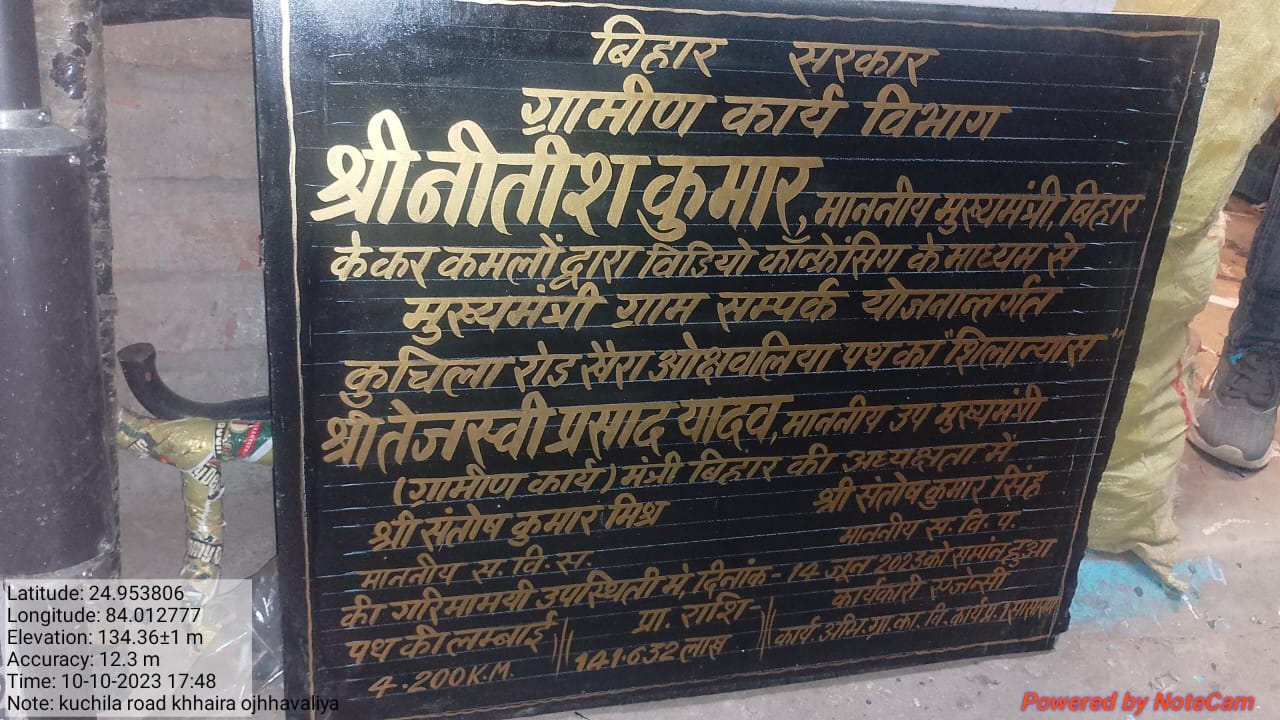 बिहार सरकार
ग्रामीण कार्य विभाग
श्री नीतीश कुमार, माननीय मुख्यमंत्री, बिहार
के कर कमलों द्वारा विडियो कॉन्फ्रेंसिंग के माध्यम से
मुख्यमंत्री ग्राम सम्पर्क योजनान्तर्गत
कुचिला रोड खैरा ओझवलिया पथ का "शिलान्यास"
श्री तेजस्वी प्रसाद यादव, माननीय उप मुख्यमंत्री
(ग्रामीण कार्य) मंत्री बिहार की अध्यक्षता में
श्री संतोष कुमार मिश्र श्री संतोष कुमार सिंह
माननीय स. वि. स. माननीय स. वि. प.
की गरिमामयी उपस्थिती मे, दिनांक- 14 जून 2023 को समांन हुआ
पथ की लम्बाई प्रा. राशि- कार्यकारी एजेन्सी
4.200 K.M. 141.632 लाख कार्य. अभि. ग्रा. का. वि. कार्य प्र. 1
Latitude: 24.953806
Longitude: 84.012777
Elevation: 134.36±1 m
Accuracy: 12.3 m
Time: 10-10-2023 17:48
Note: kuchila road khhaira ojhhavaliya
Powered by NoteCam